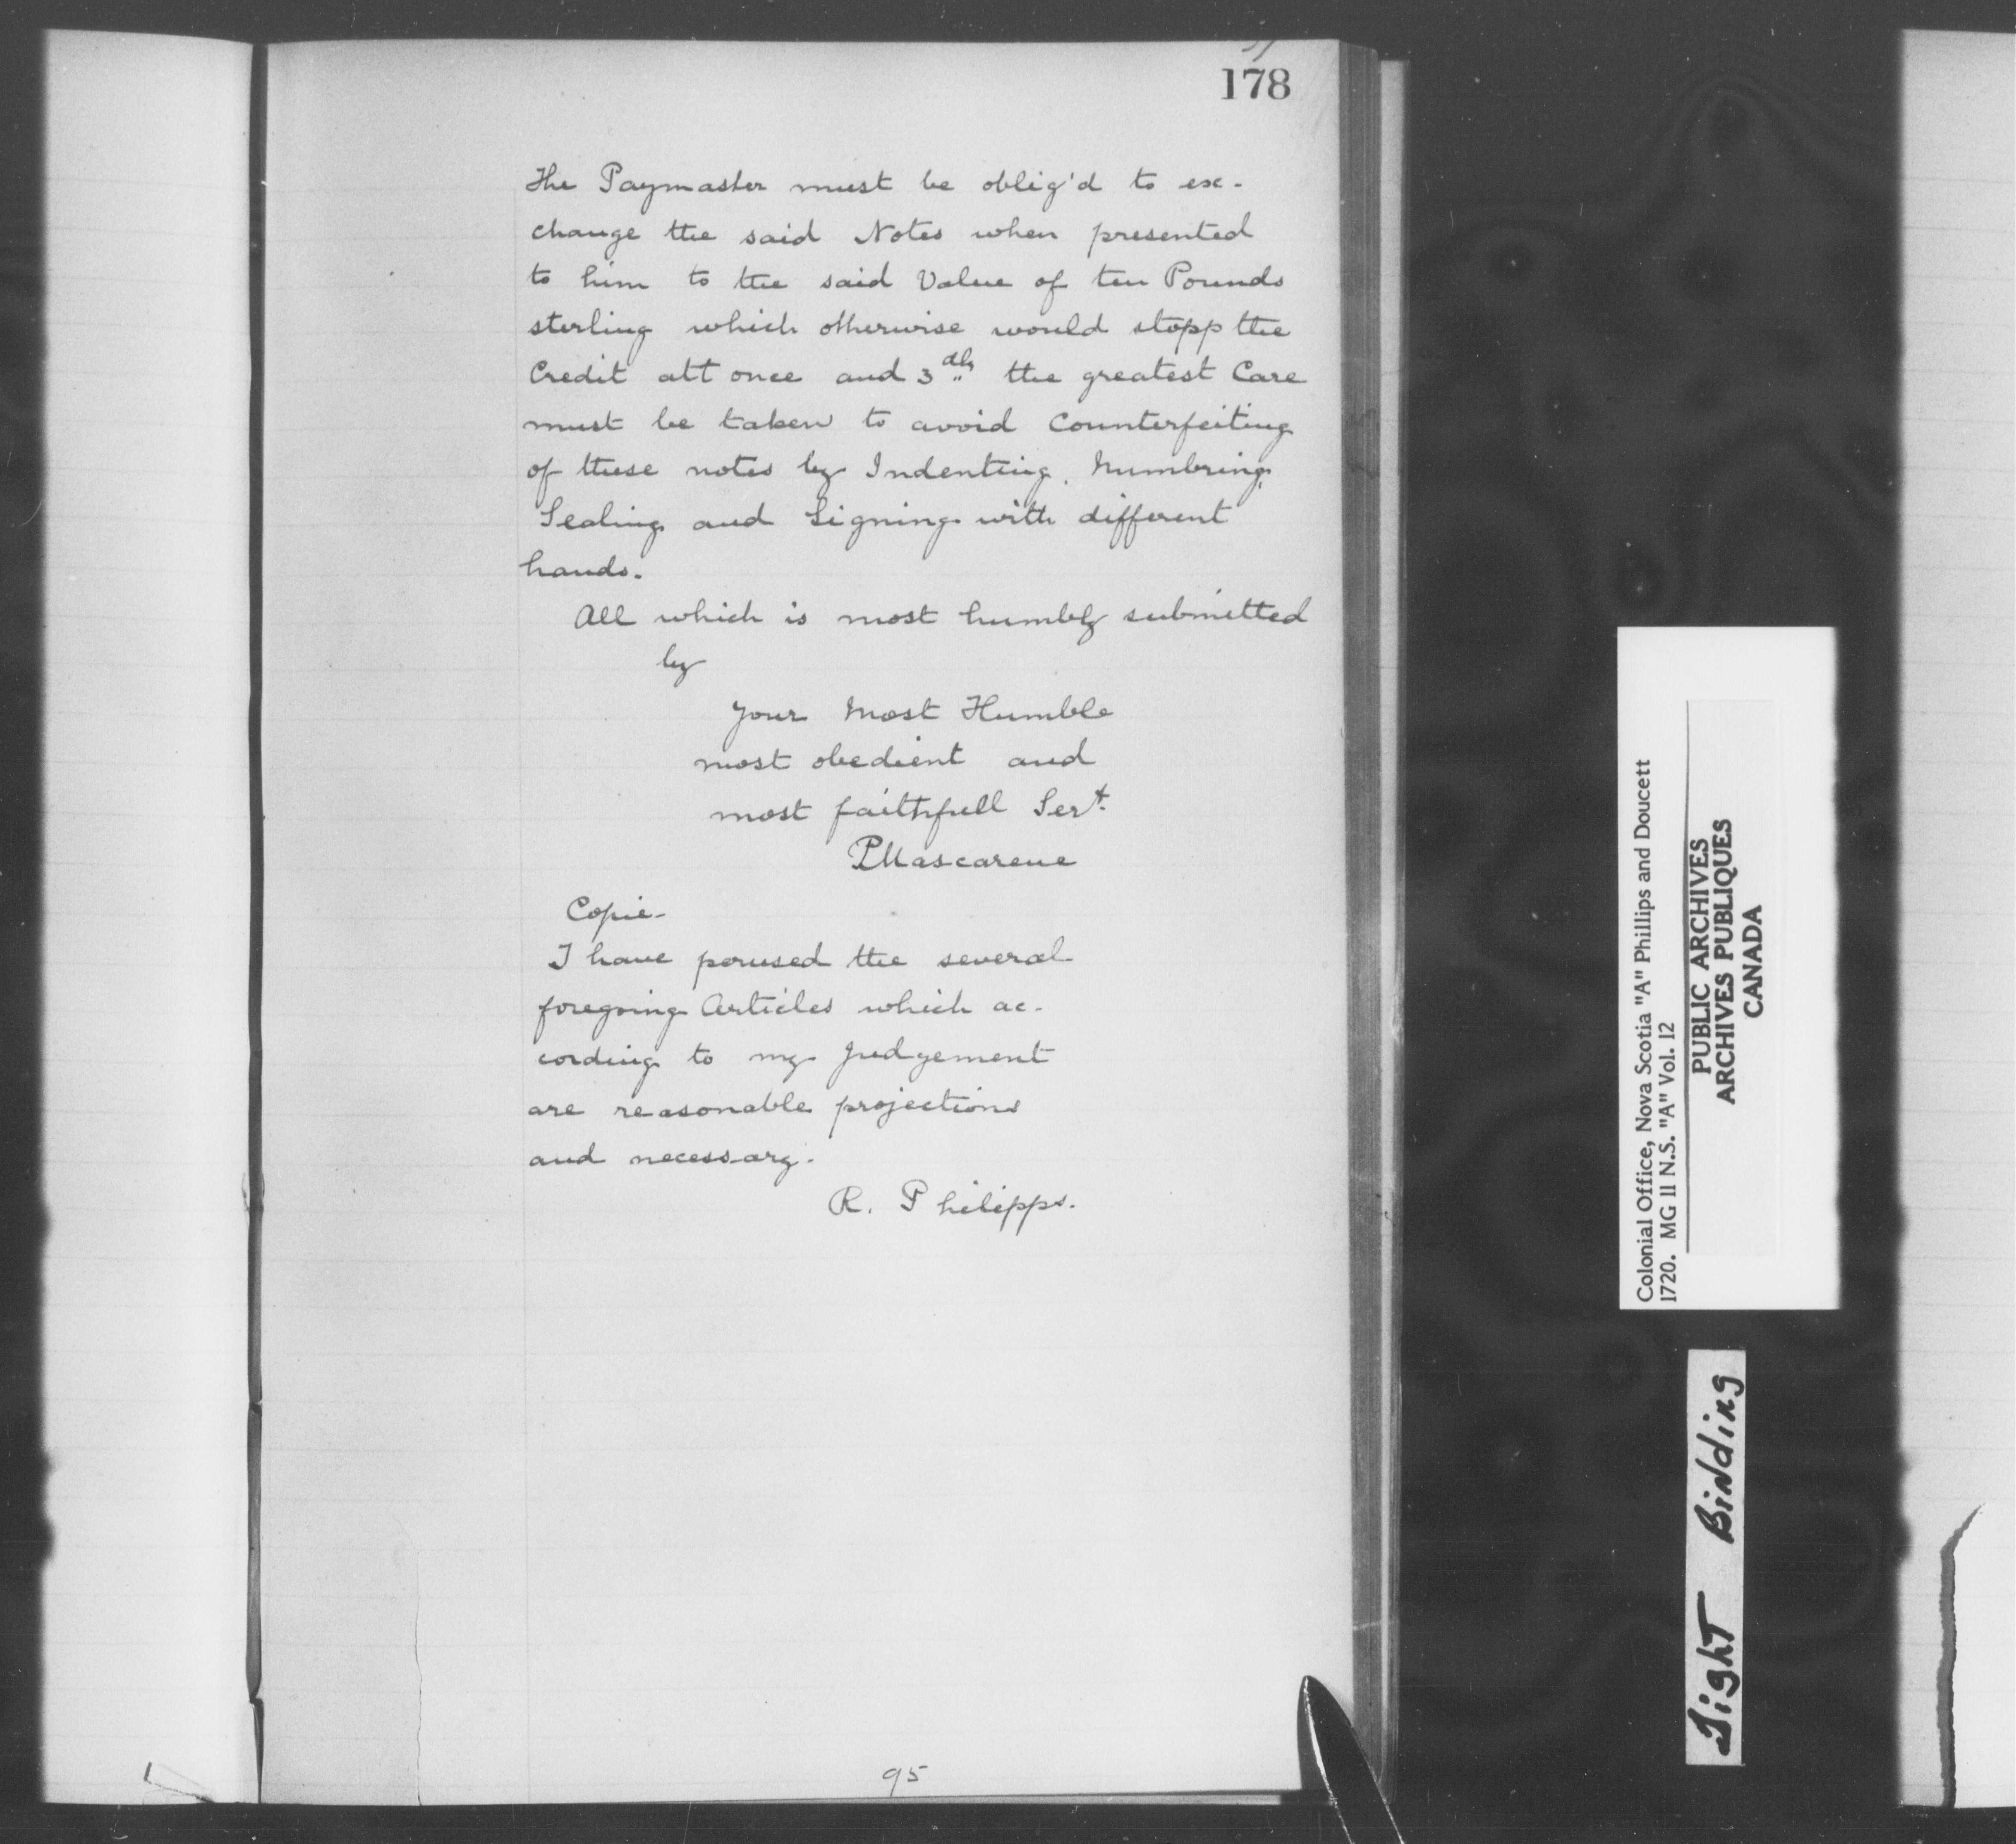 178
The Paymaster must be oblig'd to ex-
change the said Notes when presented
to him to the said Value of ten Pounds
sterling which otherwise would stopp the
Credit att once and 3dly the greatest Care
must be taken to avoid Counterfeiting
of these notes by Indenting, Numbring,
Sealing and Signing with different
hands.
All which is most humbly submitted
by
Your Most Humble
most obedient and
most faithfull Sert.
PMascarene
Copie-
I have perused the several
foregoing Articles which ac-
cording to my Judgement
are reasonable projections
and necessary.
R. Philipps.
95
Colonial Office, Nova Scotia "A" Phillips and Doucett
1720. MG 11 N.S. "A" Vol. 12
PUBLIC ARCHIVES
ARCHIVES PUBLIQUES
CANADA
Tight Binding